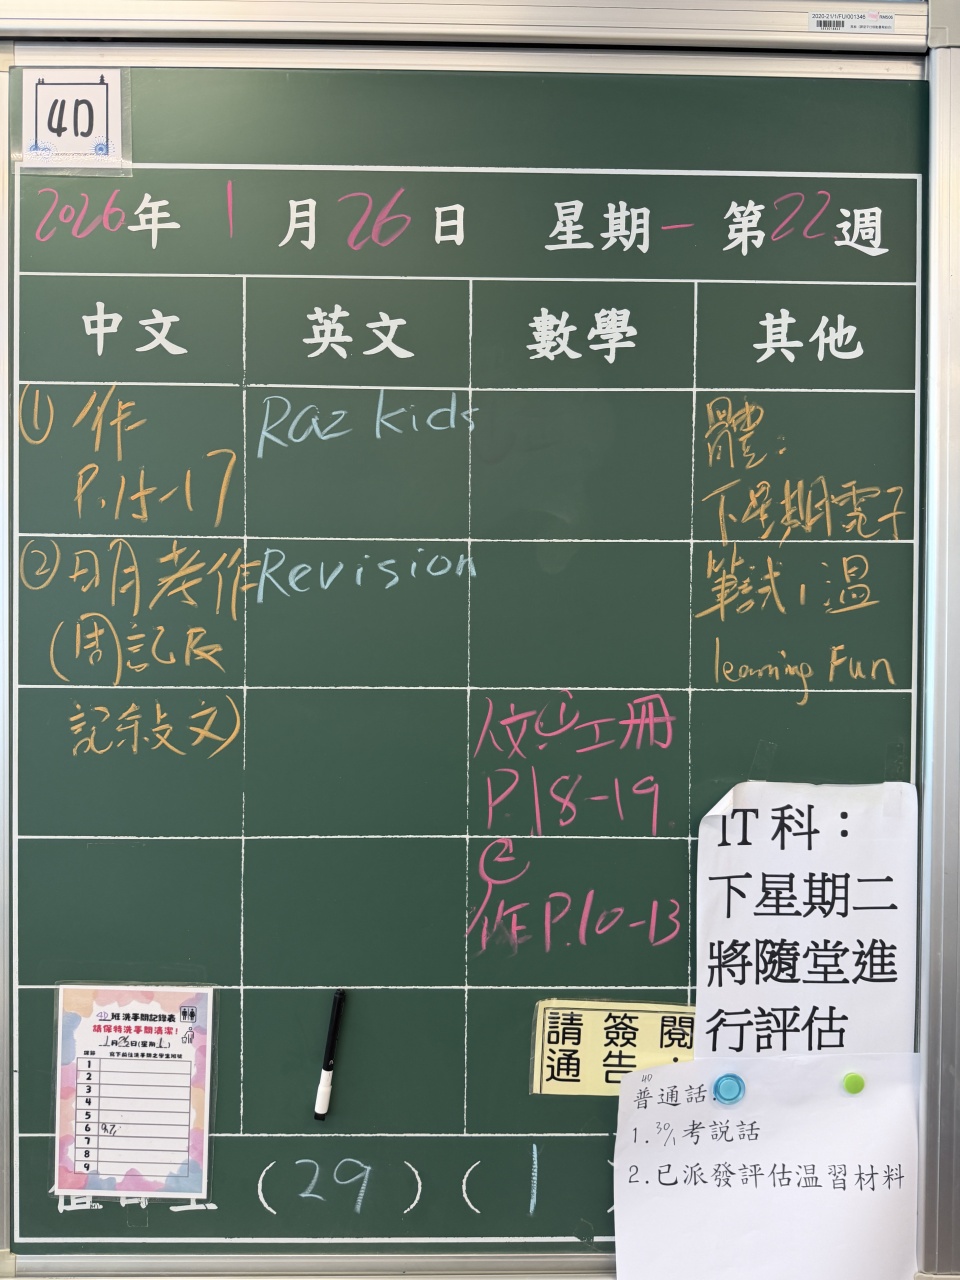 2020-21/1/FU/001346
4D
2026年 1月26日 星期一 第22週
中文
英文
數學
其他
① 作
P.15-17
② 明考作
(周)記反
記敍文)
Raz kids
Revision
校①工冊
P.18-19
②
作P.10-13
體:
下星期電子
筆試,溫
learning Fun
IT科:
下星期二
將隨堂進
行評估
請簽閱
通告:
4D
普通話:
1. 30/1 考說話
2.已派發評估溫習材料
4D班洗手間記錄表
請保持洗手間清潔!
1月26日(星期一)
課節
寫下前往洗手間之學生班號
1
2
3
4
5
6
7
8
9
值日生 (29) (1